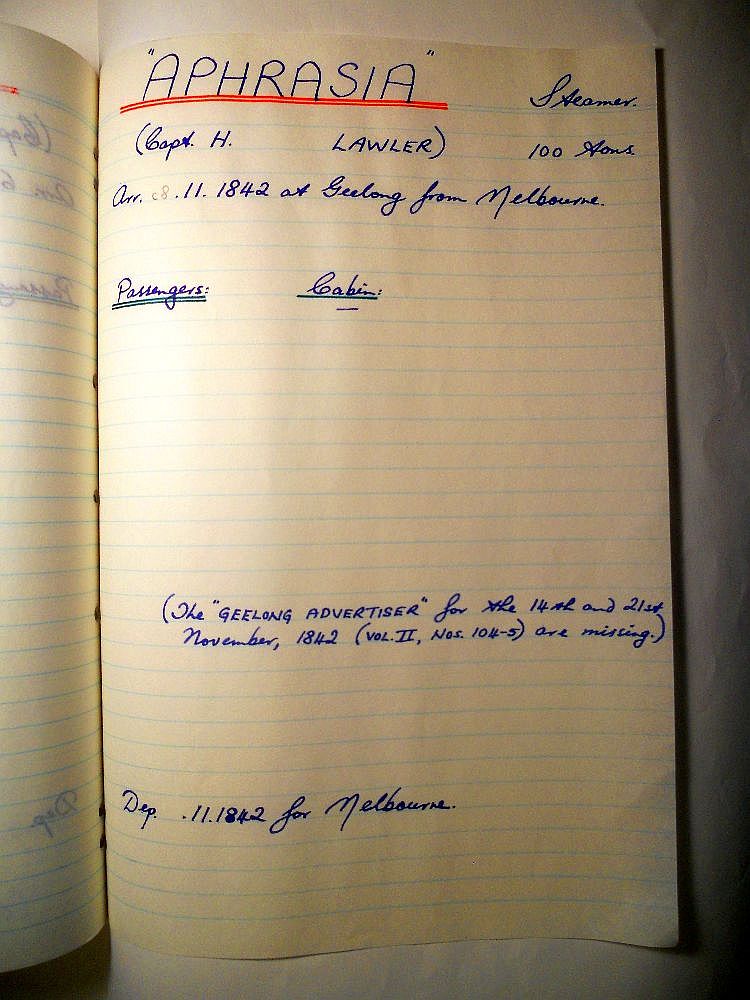 "APHRASIA" Steamer.
(Capt. H. LAWLER) 100 tons
Arr. c8.11.1842 at Geelong from Melbourne.
Passengers: Cabin:
(The "GEELONG ADVERTISER" for the 14th and 21st
November, 1842 (VOL. II, NOS. 104-5) are missing.)
Dep. .11.1842 for Melbourne.